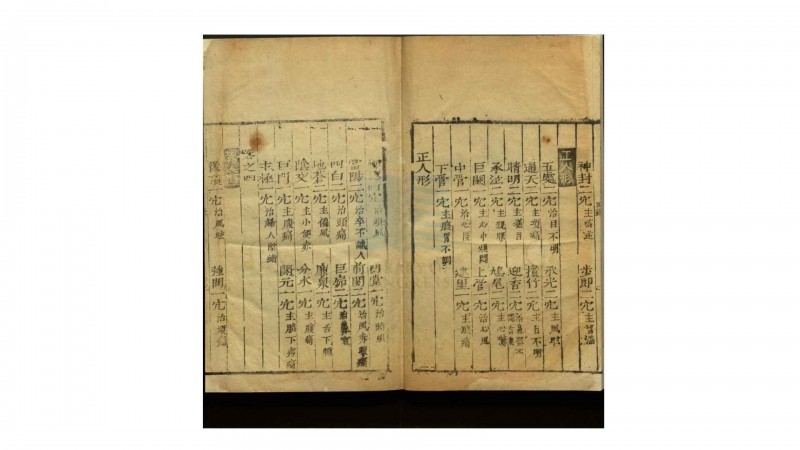 神封二穴主 步郎二穴主胷滿
正人形
五處二穴治目不明 承光二穴主風眩
通天二穴主項痛 二穴主目不明
睛明二穴主 迎香二穴治鼻
承泣二穴主 鳩尾一穴主心驚
巨闕一穴主心中煩悶 上管一穴治心風
中管一穴治心 建里一穴主腹痛
下管一穴主腹胃不調
正人形
一穴治頭風 明堂一穴治頭風
當陽二穴治卒不識人 前關二穴治風赤眼痛
陽白二穴治頭痛 巨窌二穴治鼻窒
地倉二穴主偏風 廉泉一穴主舌下腫
陰交一穴主小便赤 分水一穴主腹痛
石門一穴主腹痛 關元一穴主臍下疼痛
極一穴治婦人斷緒
卷之四
後頂一穴治風眩 強間一穴治頭痛